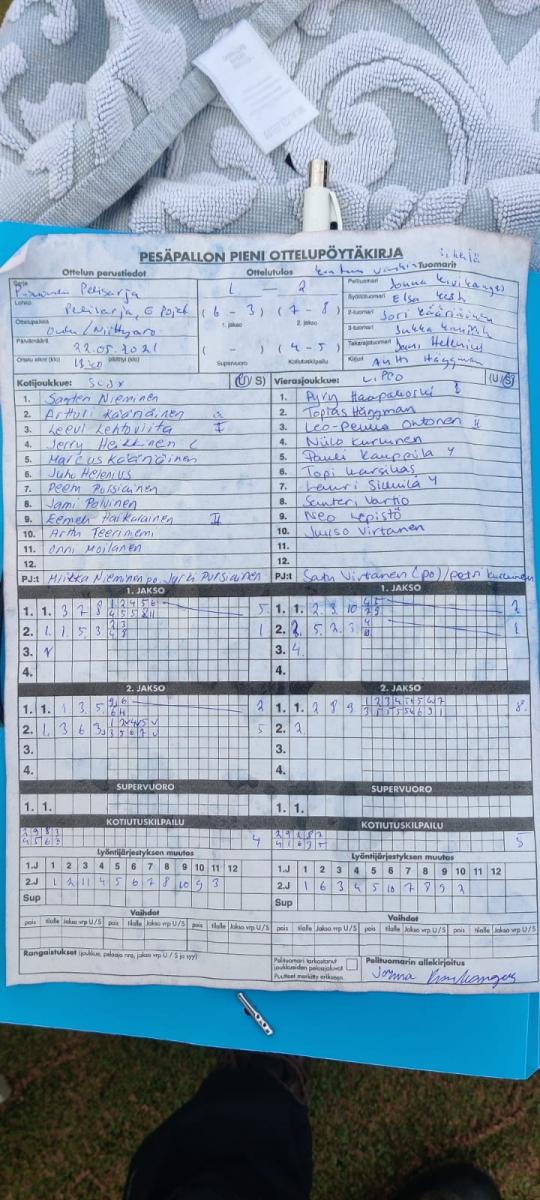 PESÄPALLON PIENI OTTELUPÖYTÄKIRJA
Ottelun perustiedot
Ottelutulos
Tuomarit
Sarja
Pelisarja
Lohko
Pelisarja, G Pojat
Ottelupaikka
Oulu / Niittyaro
Päivämäärä
22.05.2021
Ottelu alkoi (klo)
päättyi (klo)
1 — 2
( 6 - 3 ) ( 7 - 8 )
1. jakso 2. jakso
( - ) ( 4 - 5 )
Supervuoro Kotiutuskilpailu
Pelituomari
Jorma Kivikangas
Syöttötuomari
Elsa
2-tuomari
Jori Kääriäinen
3-tuomari
Jukka
Takarajatuomari
Jani Helenius
Kirjuri
Antti Häggman
Kotijoukkue: (U/S)
1. Santeri Nieminen
2. Arttuli Käänäinen
3. Leevi Lehtovirta
4. Jerry Heikkinen
5. Marcus Käänäinen
6. Juho Helenius
7. Peem Pursiainen
8. Jami Polvinen
9. Eemeli Haikarainen
10. Arttu Teeriniemi
11. Onni Moilanen
12.
PJ:t Miikka Nieminen po, Jyrki Pursiainen
Vierasjoukkue: LIPPO (U/S)
1. Pyry Haapakoski
2. Topias Häggman
3. Leo-Pekka Ohtonen
4. Niilo Kurkinen
5. Pauli Kauppila
6. Topi Karsikas
7. Lauri Sikkilä
8. Santeri Vartio
9. Neo Lepistö
10. Juuso Virtanen
11.
12.
PJ:t Satu Virtanen (po) / petri Kurkinen
1. JAKSO
1. 1. 3 7 8 1 2 4 5 6 5
4 5 5 8 11
2. 1. 1. 5. 3 2 3 1
4 8
3.
4.
1. JAKSO
1. 1. 2 8 10 4 5 2
2. 2. 5. 2. 3 4 1
3. 4.
4.
2. JAKSO
1. 1. 1 3 5 2
2. 1. 3 6 3 5
3.
4.
2. JAKSO
1. 1. 2 8 9 8
2. 2
3.
4.
SUPERVUORO
1. 1.
SUPERVUORO
1. 1.
KOTIUTUSKILPAILU
2 9 8 3
4 5 6 3 4
KOTIUTUSKILPAILU
2 9 2 8 7
4 1 6 9 5 5
Lyöntijärjestyksen muutos
1.J 1 2 3 4 5 6 7 8 9 10 11 12
2.J 1 2 11 4 5 6 7 8 10 9 3
Sup
Lyöntijärjestyksen muutos
1.J 1 2 3 4 5 6 7 8 9 10 11 12
2.J 1 6 3 4 5 10 7 8 9 2
Sup
Vaihdot
pois tilalle Jakso vrp U / S pois tilalle Jakso vrp U / S
Vaihdot
pois tilalle Jakso vrp U / S pois tilalle Jakso vrp U / S
Rangaistukset (joukkue, pelaaja nro, jakso vrp U / S ja syy)
Pelituomari tarkastanut
joukkueiden pelaajaluvat
Puutteet merkitty erikseen
Pelituomarin allekirjoitus
Jorma Kivikangas